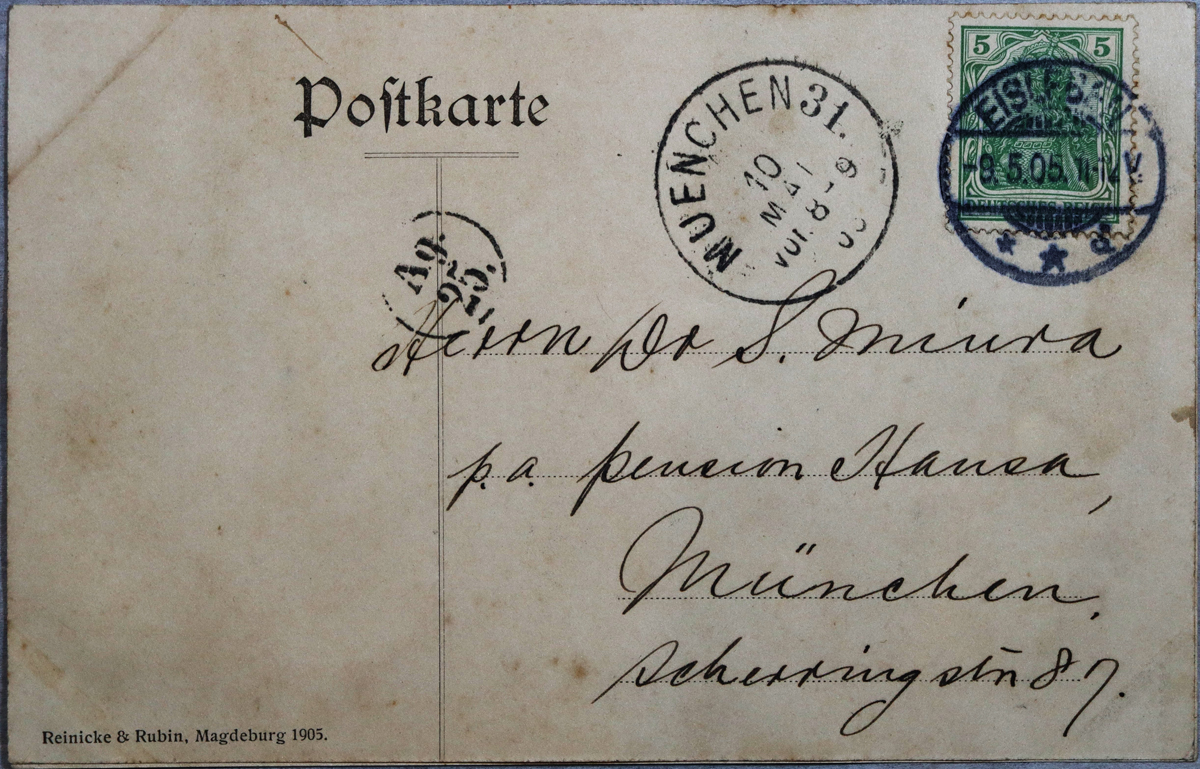 Postkarte
MUENCHEN 31.
10
MAI
Vor. 8-9
5 5
EISLEB
-9.5.05. 11-12 V
* * d
DEUTSCHES REICH
Ag.
25.
Herrn Dr S. Miura
p.a. pension Hansa,
München.
Scherringstr 87.
Reinicke & Rubin, Magdeburg 1905.